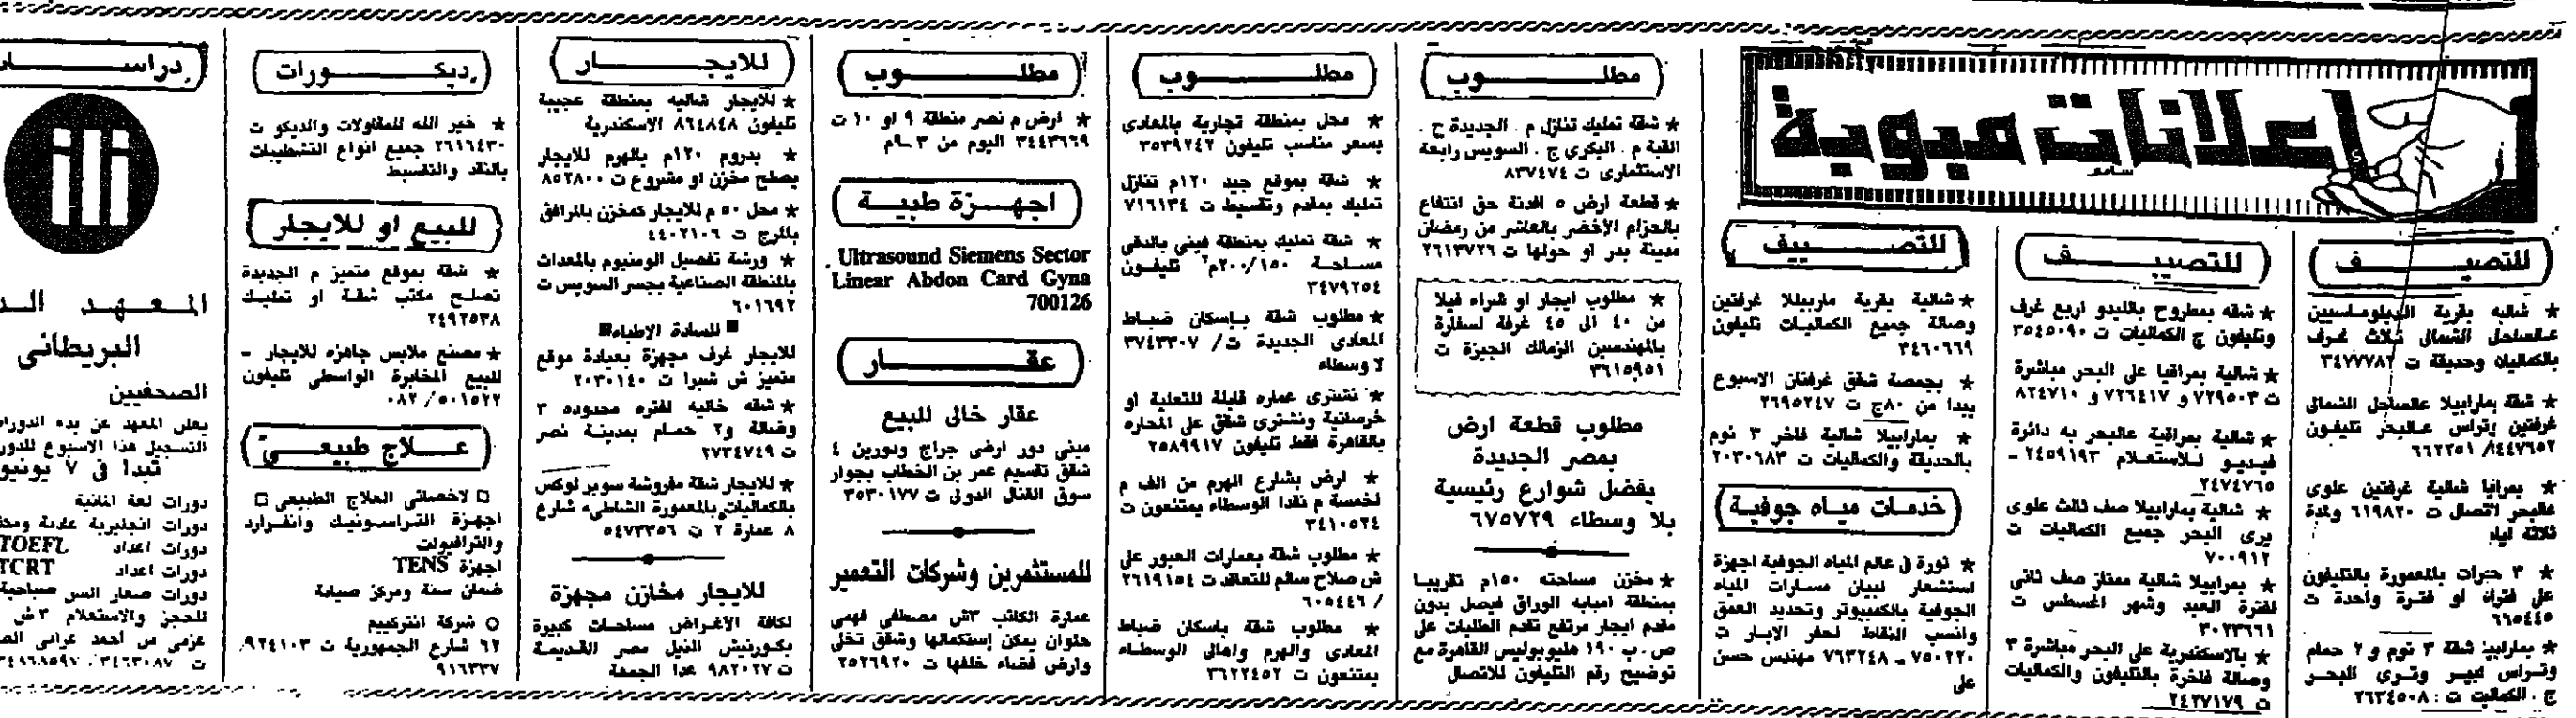 إعلانات مبوبة
سامر
للتصييف
★ شاليه بقرية الدبلوماسيين
عالساحل الشمالى ثلاث غرف
بالكماليات وحديقة ت ٣٤٧٧٧٨٢
★ شقة بمارابيلا عالساحل الشمالى
غرفتين وتراس عالبحر تليفون
٤٤٧٦٥٢/ ٦٦٢٢٥١
★ بمراقيا شالية غرفتين علوى
عالبحر اتصال ت ٦١٩٨٢٠ ولمدة
ثلاثة ايام
★ ٣ حجرات بالمعمورة بالتليفون
على فترات او فترة واحدة ت
٦٦٥٤٤٥
★ بمارابيلا شقة ٣ نوم و ٢ حمام
وتراس كبير وترى البحر
ج . الكماليات ت : ٢٦٣٤٥٠٨
للتصييف
★ شقه بمطروح بالليدو اربع غرف
وتليفون ج الكماليات ت ٣٥٤٥٠٩٠
★ شالية بمراقيا على البحر مباشرة
ت ٧٢٩٥٠٣ و ٧٢٦٤١٧ و ٨٢٤٧١٠
★ شالية بمراقية عالبحر به دائرة
فيديو للاستعلام ٢٤٥٩١٩٣ -
٢٤٧٤٧٦٥
★ شالية بمارابيلا صف ثالث علوى
يرى البحر جميع الكماليات ت
٧٠٠٩١٢
★ بمرابيلا شالية ممتاز صف ثانى
لفترة العيد وشهر اغسطس ت
٣٠٢٣٦٦١
★ بالاسكندرية على البحر مباشرة ٣
وصالة فاخرة بالتليفون والكماليات
ت ٢٤٢٧١٧٩
للتصييف
★ شالية بقرية ماربيللا غرفتين
وصالة جميع الكماليات تليفون
٣٤٦٠٦٦٩
★ بجمصة شقق غرفتان الاسبوع
يبدا من ٨٠ج ت ٢٦٩٥٢٤٧
★ بمارابيلا شالية فاخر ٣ نوم
بالحديقة والكماليات ت ٢٠٣٠٦٨٣
خدمات مياه جوفية
★ ثورة فى عالم المياه الجوفية اجهزة
استشعار لبيان مسارات المياه
الجوفية بالكمبيوتر وتحديد العمق
وانسب النقاط لحفر الابار ت
٧٥٠٢٢٠ ـ ٧٦٣٢٤٨ مهندس حسن
على
مطلوب
★ شقة تمليك تنازل م . الجديدة ح .
القبة م . البكرى ج . السويس رابعة
الاستثمارى ت ٨٣٧٤٧٤
★ قطعة ارض ٥ افدنة حق انتفاع
بالحزام الاخضر بالعاشر من رمضان
مدينة بدر او حولها ت ٢٦١٣٧٢٦
★ مطلوب ايجار او شراء فيلا
من ٤٠ الى ٤٥ غرفة لسفارة
بالمهندسين الزمالك الجيزة ت
٣٦١٥٩٥١
مطلوب قطعة ارض
بمصر الجديدة
يفضل شوارع رئيسية
بلا وسطاء ٦٧٥٧٢٩
★ مخزن مساحته ١٥٠م تقريبا
بمنطقة امبابه الوراق فيصل بدون
مقدم ايجار مرتفع تقدم الطلبات على
ص . ب ١٩٠ هليوبوليس القاهرة مع
توضيح رقم التليفون للاتصال
مطلوب
★ محل بمنطقة تجارية بالمعادى
بسعر مناسب تليفون ٣٥٣٩٢٤٢
★ شقة بموقع جيد ١٢٠م تنازل
تمليك بمقدم وتقسيط ت ٧١٦١٣٤
★ شقة تمليك بمنطقة فينى بالدقى
مساحة ٢٠٠/١٥٠م٢ تليفون
٣٤٧٩٢٥٤
★ مطلوب شقة باسكان ضباط
المعادى الجديدة ت/ ٣٧٤٣٣٠٧
لا وسطاء
★ نشترى عماره قابلة للتعلية او
خرسانية ونشترى شقق على المحاره
بالقاهرة فقط تليفون ٢٥٨٩٩١٧
★ ارض بشارع الهرم من الف م
لخمسة م نقدا الوسطاء يمتنعون ت
٣٤١٠٥٢٤
★ مطلوب شقة بعمارات العبور على
ش صلاح سالم للتعاقد ت ٢٦١٩١٥٤
/ ٦٠٥٤٤٦
★ مطلوب شقة باسكان ضباط
المعادى والهرم واهالى الوسطاء
يمتنعون ت ٣٦٢٢٤٥٢
مطلوب
★ ارض م نصر منطقة ٩ او ١٠ ت
٣٤٤٣٦٦٩ اليوم من ٣ ـ٩م
اجهزة طبية
Ultrasound Siemens Sector
Linear Abdon Card Gyna
700126
عقار
عقار خالى للبيع
مبنى دور ارضى جراج ودورين ٤
شقق تقسيم عمر بن الخطاب بجوار
سوق القنال الدولى ت ٣٥٣٠١٧٧
للمستثمرين وشركات التعمير
عمارة الكاتب ٣ش مصطفى فهمى
حلوان يمكن إستكمالها وشقق تخلى
وارض فضاء خلفها ت ٢٥٢٦٩٢٠
للايجار
★ للايجار شاليه بمنطقة عجيبة
تليفون ٨٦٤٨٤٨ الاسكندرية
★ بدروم ١٢٠م بالهرم للايجار
يصلح مخزن او مشروع ت ٨٥٢٨٠٠
★ محل ٥٠ م للايجار كمخزن بالمرافق
بالمرج ت ٤٤٠٢١٠٦
★ ورشة تفصيل الومنيوم بالمعدات
بالمنطقة الصناعية بجسر السويس ت
٦٠١٦٩٢
■ للسادة الاطباء■
للايجار غرف مجهزة بعيادة موقع
متميز ش شبرا ت ٢٠٣٠١٤٠
★ شقه خاليه لفتره محدوده ٣
وصالة و٢ حمام بمدينة نصر
ت ٢٧٣٤٧٤٩
★ للايجار شقة مفروشة سوبر لوكس
بالكماليات بالمعمورة الشاطىء شارع
٨ عمارة ٢ ت ٥٤٧٣٣٥٦
للايجار مخازن مجهزة
لكافة الاغراض مساحات كبيرة
بكورنيش النيل مصر القديمة
ت ٩٨٢٠٢٧ عدا الجمعة
ديكورات
★ خير الله للمقاولات والديكو ت
٢٦١٦٤٣٠ جميع انواع التشطيبات
بالنقد والتقسيط
للبيع او للايجار
★ شقة بموقع متميز م الجديدة
تصلح مكتب شقة او تمليك
٢٤٩٢٥٣٨
★ مصنع ملابس جاهزه للايجار -
للبيع المخابرة الواسطى تليفون
٠٨٢ /٥٠١٥٢٢
علاج طبيعى
□ لاخصائى العلاج الطبيعى □
اجهزة التراسونيك وانفرارد
والترافيولت
اجهزة TENS
ضمان سنة ومركز صيانة
○ شركة انتركيم
٦٢ شارع الجمهورية ت ٩٢٤١٠٣
٩١٦٣٣٧
دراسا
المعهد الد
البريطانى
الصحفيين
يعلن المعهد عن بدء الدورا
التسجيل هذا الاسبوع للدور
تبدا فى ٧ يونيو
دورات لغة المانية
دورات انجليزية عادية ومك
دورات اعداد TOEFL
دورات اعداد TCRT
دورات صغار السن صباحية
للحجز والاستعلام ٣ش
عزمى س أحمد عرابى الص
ت ٣٤٦٣٠٨٧